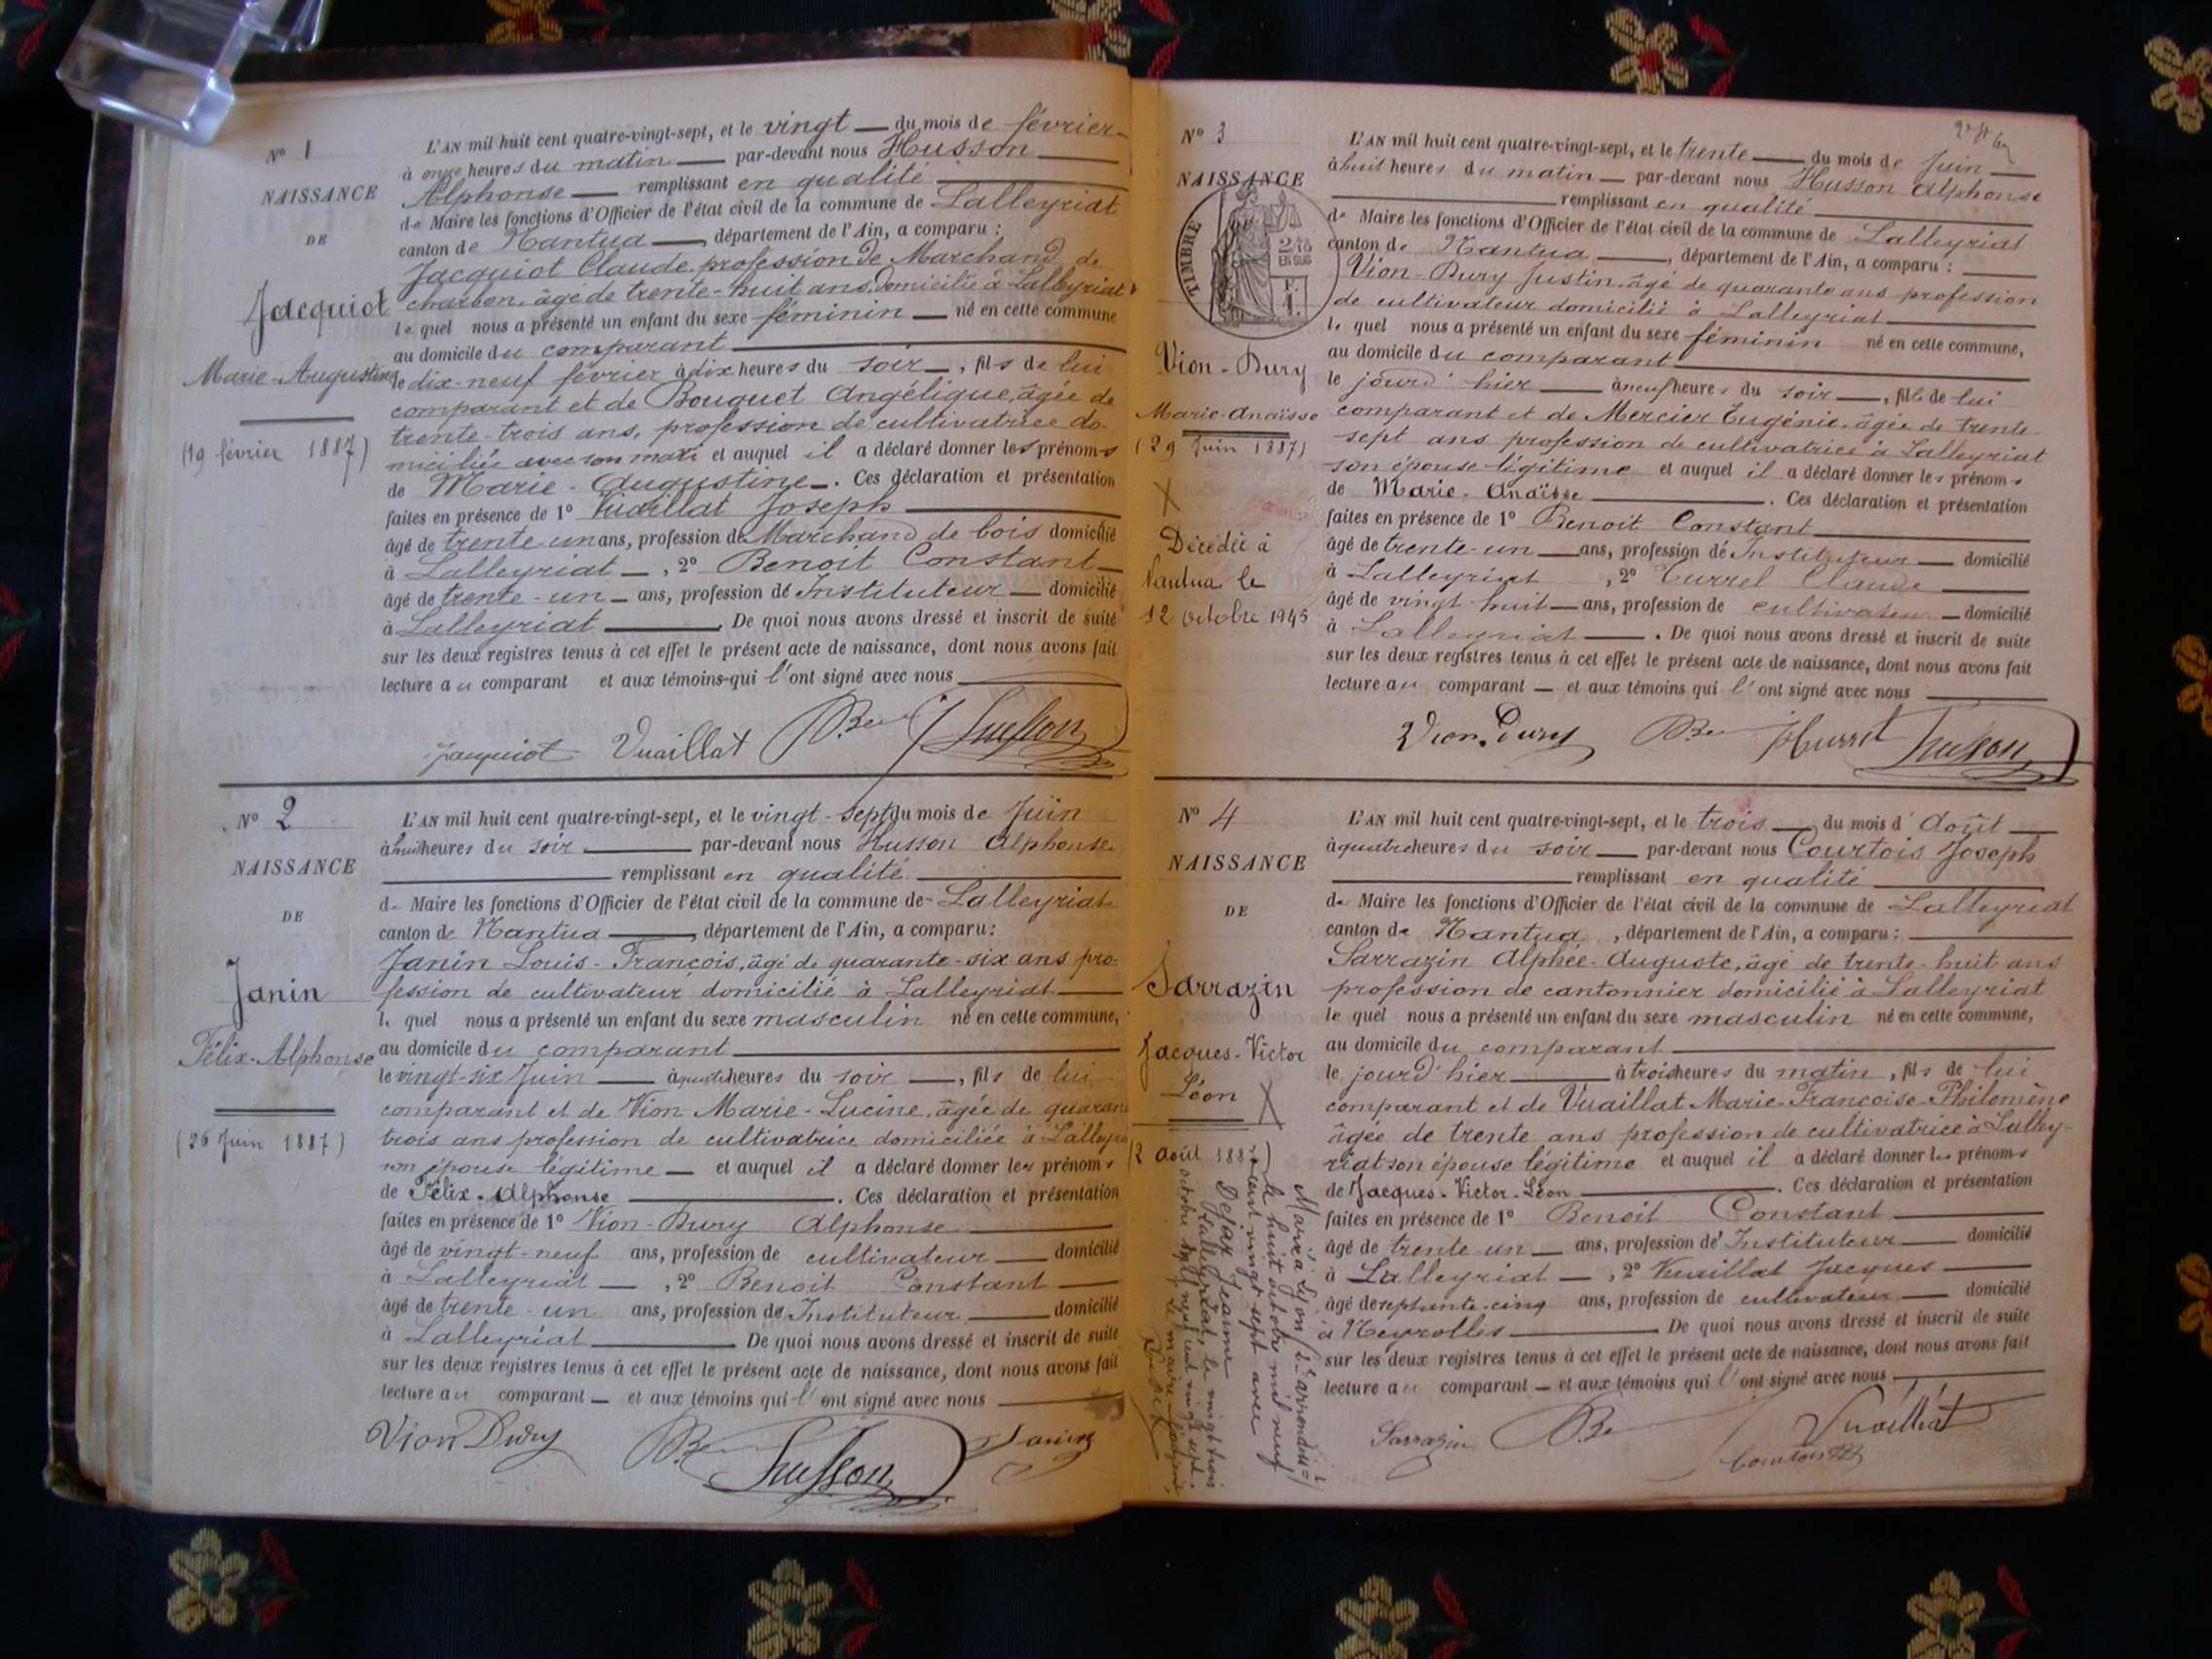 N° 1
NAISSANCE
DE
Jacquiot
Marie-Augustine
(19 février 1887)
L'AN mil huit cent quatre-vingt-sept, et le vingt du mois de février
à onze heures du matin par-devant nous Husson
Alphonse remplissant en qualité
de Maire les fonctions d'Officier de l'état civil de la commune de Lalleyriat
canton de Nantua, département de l'Ain, a comparu :
Jacquiot Claude profession de Marchand de
charbon, âgé de trente-huit ans, domicilié à Lalleyriat
lequel nous a présenté un enfant du sexe féminin né en cette commune
au domicile du comparant
le dix-neuf février à dix heures du soir, fils de lui
comparant et de Bouquet Angélique, âgée de
trente-trois ans, profession de cultivatrice do-
miciliée avec son mari et auquel il a déclaré donner les prénoms
de Marie-Augustine. Ces déclaration et présentation
faites en présence de 1° Vuaillat Joseph
âgé de trente-un ans, profession de Marchand de bois domicilié
à Lalleyriat, 2° Benoit Constant
âgé de trente-un ans, profession de Instituteur domicilié
à Lalleyriat De quoi nous avons dressé et inscrit de suite
sur les deux registres tenus à cet effet le présent acte de naissance, dont nous avons fait
lecture au comparant et aux témoins qui l'ont signé avec nous
Jacquiot Vuaillat Husson
N° 2
NAISSANCE
DE
Janin
Félix-Alphonse
(26 Juin 1887)
L'AN mil huit cent quatre-vingt-sept, et le vingt-sept du mois de Juin
à huit heures du soir par-devant nous Husson Alphonse
remplissant en qualité
de Maire les fonctions d'Officier de l'état civil de la commune de Lalleyriat
canton de Nantua, département de l'Ain, a comparu :
Janin Louis-François, âgé de quarante-six ans pro-
fession de cultivateur domicilié à Lalleyriat
lequel nous a présenté un enfant du sexe masculin né en cette commune,
au domicile du comparant
le vingt-six Juin à quatre heures du soir, fils de lui
comparant et de Vion Marie-Lucine, âgée de quarante
trois ans profession de cultivatrice domiciliée à Lalleyriat
son épouse légitime et auquel il a déclaré donner les prénoms
de Félix-Alphonse. Ces déclaration et présentation
faites en présence de 1° Vion-Dury Alphonse
âgé de vingt-neuf ans, profession de cultivateur domicilié
à Lalleyriat, 2° Benoit Constant
âgé de trente-un ans, profession de Instituteur domicilié
à Lalleyriat De quoi nous avons dressé et inscrit de suite
sur les deux registres tenus à cet effet le présent acte de naissance, dont nous avons fait
lecture au comparant et aux témoins qui l'ont signé avec nous
Vion Dury Husson Janin
N° 3
NAISSANCE
TIMBRE
Vion-Dury
Marie-Anaïsse
(29 Juin 1887)
Décédée à
Nantua le
12 octobre 1945
L'AN mil huit cent quatre-vingt-sept, et le trente du mois de Juin
à huit heures du matin par-devant nous Husson Alphonse
remplissant en qualité
de Maire les fonctions d'Officier de l'état civil de la commune de Lalleyriat
canton de Nantua, département de l'Ain, a comparu :
Vion-Dury Justin, âgé de quarante ans profession
de cultivateur domicilié à Lalleyriat
lequel nous a présenté un enfant du sexe féminin né en cette commune,
au domicile du comparant
le jourd'hier à neuf heures du soir, fils de lui
comparant et de Mercier Eugénie, âgée de trente-
sept ans profession de cultivatrice à Lalleyriat
son épouse légitime et auquel il a déclaré donner les prénoms
de Marie-Anaïsse. Ces déclaration et présentation
faites en présence de 1° Benoit Constant
âgé de trente-un ans, profession de Instituteur domicilié
à Lalleyriat, 2° Claude
âgé de vingt-huit ans, profession de cultivateur domicilié
à Lalleyriat. De quoi nous avons dressé et inscrit de suite
sur les deux registres tenus à cet effet le présent acte de naissance, dont nous avons fait
lecture au comparant et aux témoins qui l'ont signé avec nous
Vion-Dury Husson
N° 4
NAISSANCE
DE
Sarrazin
Jacques-Victor
Léon
(2 août 1887)
Marié à Lyon (2e arrondiss=t)
le huit octobre mil neuf
cent vingt-sept avec
Dejax Jeanne
Lalleyriat, le vingt trois
octobre mil neuf cent vingt sept.
L'AN mil huit cent quatre-vingt-sept, et le trois du mois d'Août
à quatre heures du soir par-devant nous Courtois Joseph
remplissant en qualité
de Maire les fonctions d'Officier de l'état civil de la commune de Lalleyriat
canton de Nantua, département de l'Ain, a comparu :
Sarrazin Alphée-Auguste, âgé de trente-huit ans
profession de cantonnier domicilié à Lalleyriat
lequel nous a présenté un enfant du sexe masculin né en cette commune,
au domicile du comparant
le jourd'hier à trois heures du matin, fils de lui
comparant et de Vuaillat Marie-Françoise-Philomène
âgée de trente ans profession de cultivatrice à Lalley-
riat son épouse légitime et auquel il a déclaré donner les prénoms
de Jacques-Victor-Léon. Ces déclaration et présentation
faites en présence de 1° Benoit Constant
âgé de trente-un ans, profession de Instituteur domicilié
à Lalleyriat, 2° Vuaillat Jacques
âgé de septante-cinq ans, profession de cultivateur domicilié
à Neyrolles De quoi nous avons dressé et inscrit de suite
sur les deux registres tenus à cet effet le présent acte de naissance, dont nous avons fait
lecture au comparant et aux témoins qui l'ont signé avec nous
Sarrazin Vuaillat
Courtois